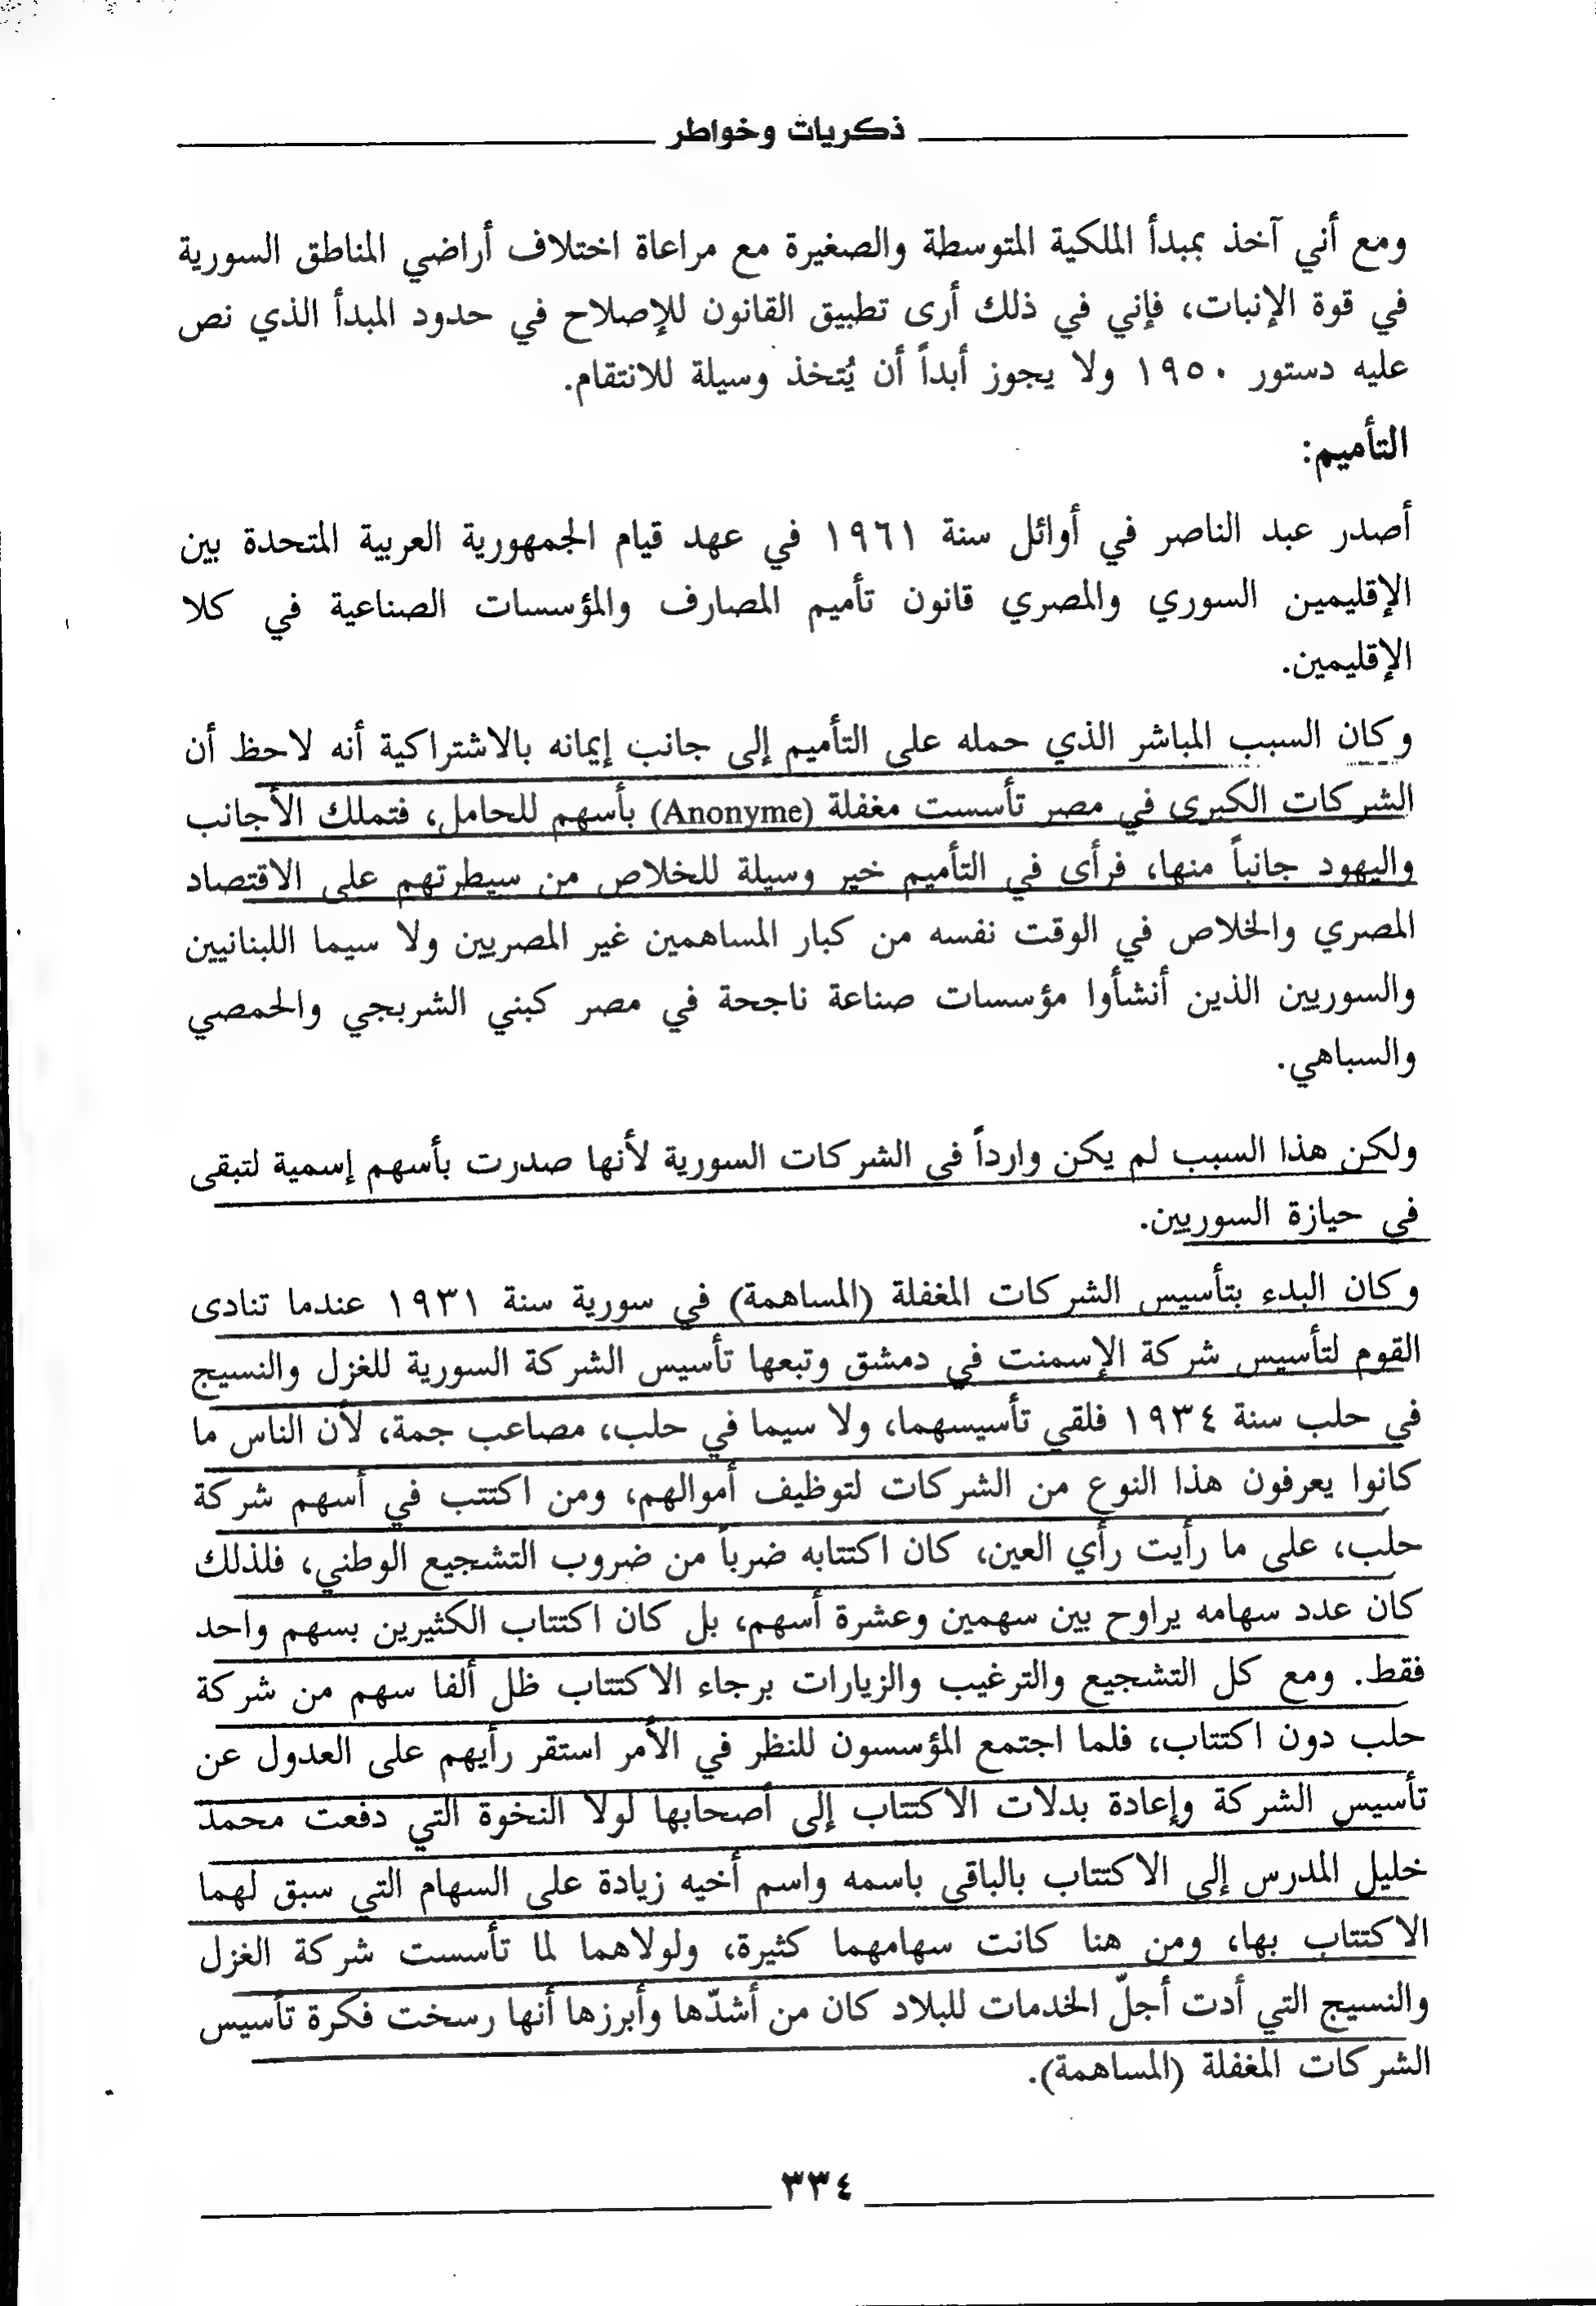 ذكريات وخواطر
ومع أني آخذ بمبدأ الملكية المتوسطة والصغيرة مع مراعاة اختلاف أراضي المناطق السورية
في قوة الإنبات، فإني في ذلك أرى تطبيق القانون للإصلاح في حدود المبدأ الذي نص
عليه دستور ١٩٥٠ ولا يجوز أبداً أن يُتخذ وسيلة للانتقام.
التأميم:
أصدر عبد الناصر في أوائل سنة ١٩٦١ في عهد قيام الجمهورية العربية المتحدة بين
الإقليمين السوري والمصري قانون تأميم المصارف والمؤسسات الصناعية في كلا
الإقليمين.
وكان السبب المباشر الذي حمله على التأميم إلى جانب إيمانه بالاشتراكية أنه لاحظ أن
الشركات الكبرى في مصر تأسست مغفلة (Anonyme) بأسهم للحامل، فتملك الأجانب
واليهود جانباً منها، فرأى في التأميم خير وسيلة للخلاص من سيطرتهم على الاقتصاد
المصري والخلاص في الوقت نفسه من كبار المساهمين غير المصريين ولا سيما اللبنانيين
والسوريين الذين أنشأوا مؤسسات صناعة ناجحة في مصر كبني الشربجي والحمصي
والسباهي.
ولكن هذا السبب لم يكن وارداً في الشركات السورية لأنها صدرت بأسهم إسمية لتبقى
في حيازة السوريين.
وكان البدء بتأسيس الشركات المغفلة (المساهمة) في سورية سنة ١٩٣١ عندما تنادى
القوم لتأسيس شركة الإسمنت في دمشق وتبعها تأسيس الشركة السورية للغزل والنسيج
في حلب سنة ١٩٣٤ فلقي تأسيسهما، ولا سيما في حلب، مصاعب جمة، لأن الناس ما
كانوا يعرفون هذا النوع من الشركات لتوظيف أموالهم، ومن اكتتب في أسهم شركة
حلب، على ما رأيت رأي العين، كان اكتتابه ضرباً من ضروب التشجيع الوطني، فلذلك
كان عدد سهامه يراوح بين سهمين وعشرة أسهم، بل كان اكتتاب الكثيرين بسهم واحد
فقط. ومع كل التشجيع والترغيب والزيارات برجاء الاكتتاب ظل ألفا سهم من شركة
حلب دون اكتتاب، فلما اجتمع المؤسسون للنظر في الأمر استقر رأيهم على العدول عن
تأسيس الشركة وإعادة بدلات الاكتتاب إلى أصحابها لولا النخوة التي دفعت محمد
خليل المدرس إلى الاكتتاب بالباقي باسمه واسم أخيه زيادة على السهام التي سبق لهما
الاكتتاب بها، ومن هنا كانت سهامهما كثيرة، ولولاهما لما تأسست شركة الغزل
والنسيج التي أدت أجلّ الخدمات للبلاد كان من أشدّها وأبرزها أنها رسخت فكرة تأسيس
الشركات المغفلة (المساهمة).
٣٣٤